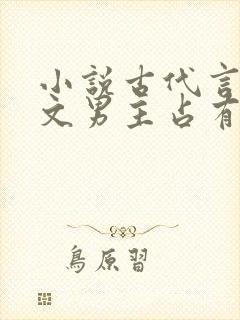 小說古代言
文男主占有
鳥原習